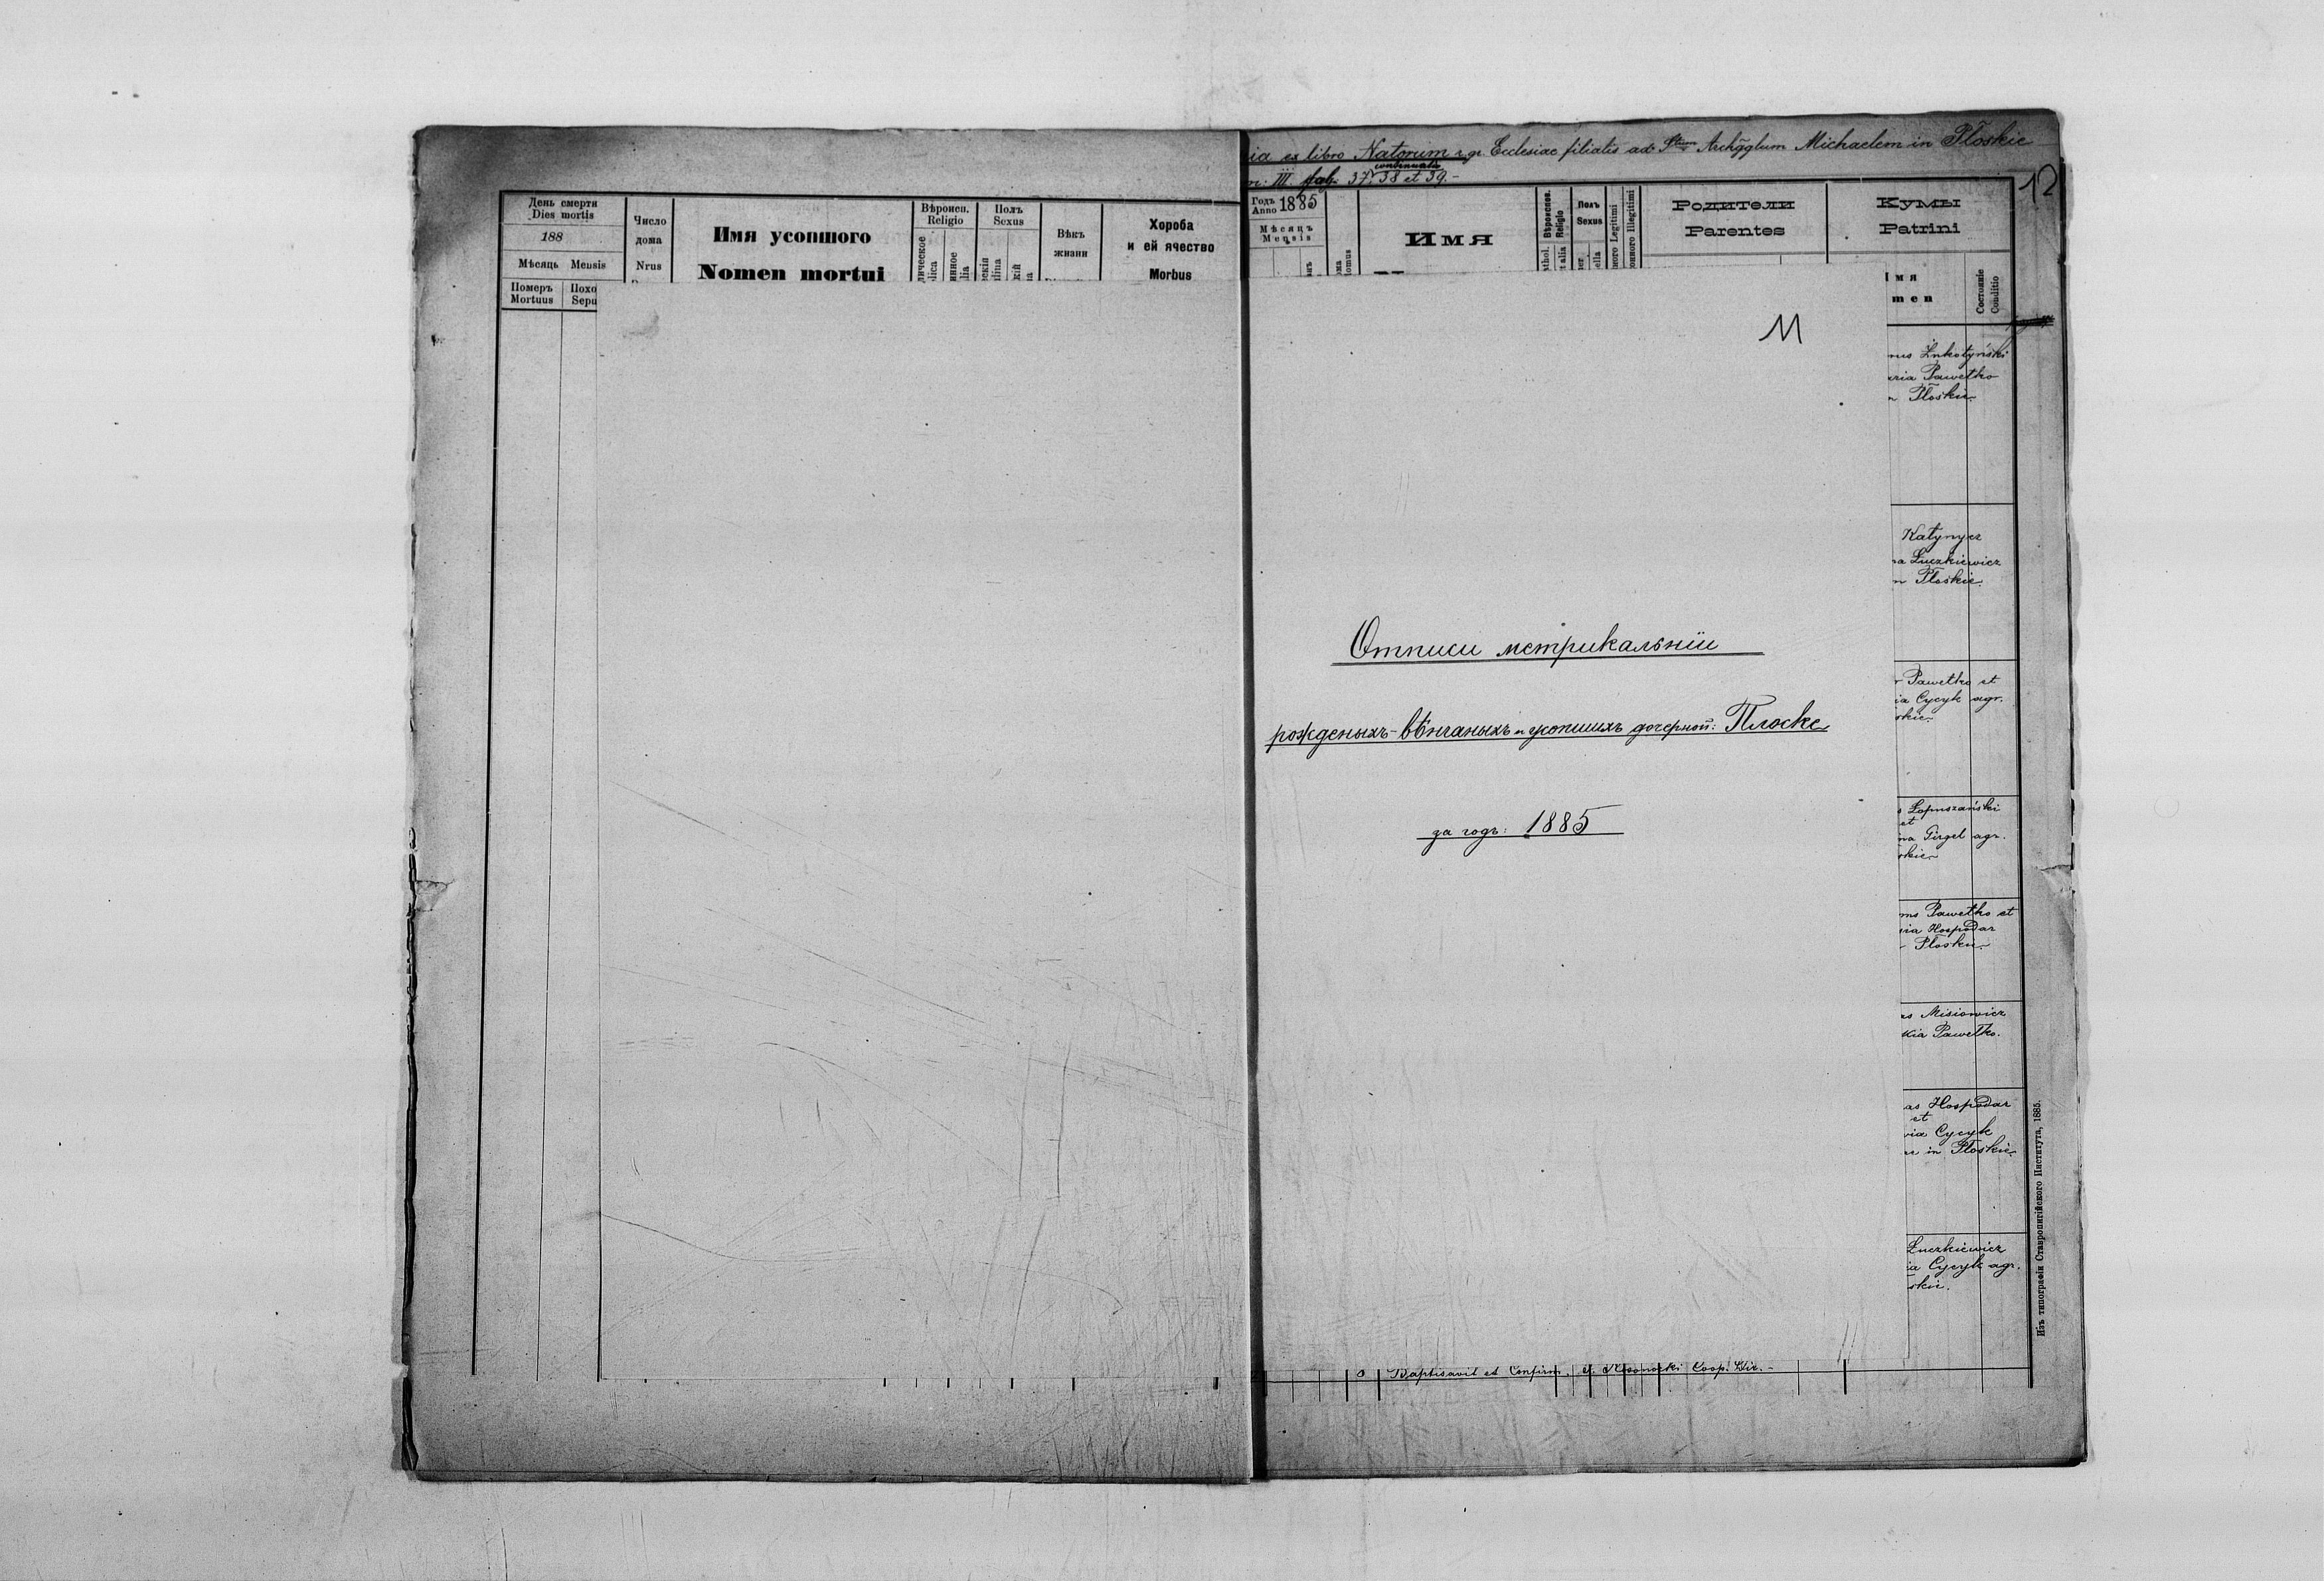 День смерти
Dies mortis
188
Мѣсяць Mensis
Померъ
Mortuus
Похо
Sepu
Число
дома
Nrus
Имя усопшого
Nomen mortui
Вѣроисп.
Religio
Полъ
Sexus
Вѣкъ
жизни
Хороба
и ей ячество
Morbus
ia ex libro Natorum r. gr. Ecclesiae filialis ad Stum Archgglum Michaelem in Płoskie
continuata
III. pag. 37. 38 et 39.-
12
Годъ
Anno 1885
Мѣсяць
Mensis
Имя
Вѣроиспов.
Religio
Полъ
Sexus
ного Legitimi
онного Illegitimi
Родители
Parentes
Кумы
Patrini
Имя
men
Состояніе
Conditio
11
Отписи метрикальніи
рожденыхъ-вѣнчаныхъ и усопшихъ дочерной: Плоске
за годъ: 1885
aria Pawełko
n Płoskie
Katynycz
na Łuczkiewicz
n Płoskie.
r Pawełko et
ia Cycyk agr.
skie
s Łopuszański
et
na Girgel agr.
skie
ms Pawełko et
ria Hospodar
Płoskie
as Misiowicz
kia Pawełko.
as Hospodar
et
ria Cycyk
ar in Płoskie
Łuczkiewicz
ia Cycyk agr.
skie.
Baptisavit et Confirm. Coop. Dir. -
Изъ типографіи Ставропигійского Института, 1885.